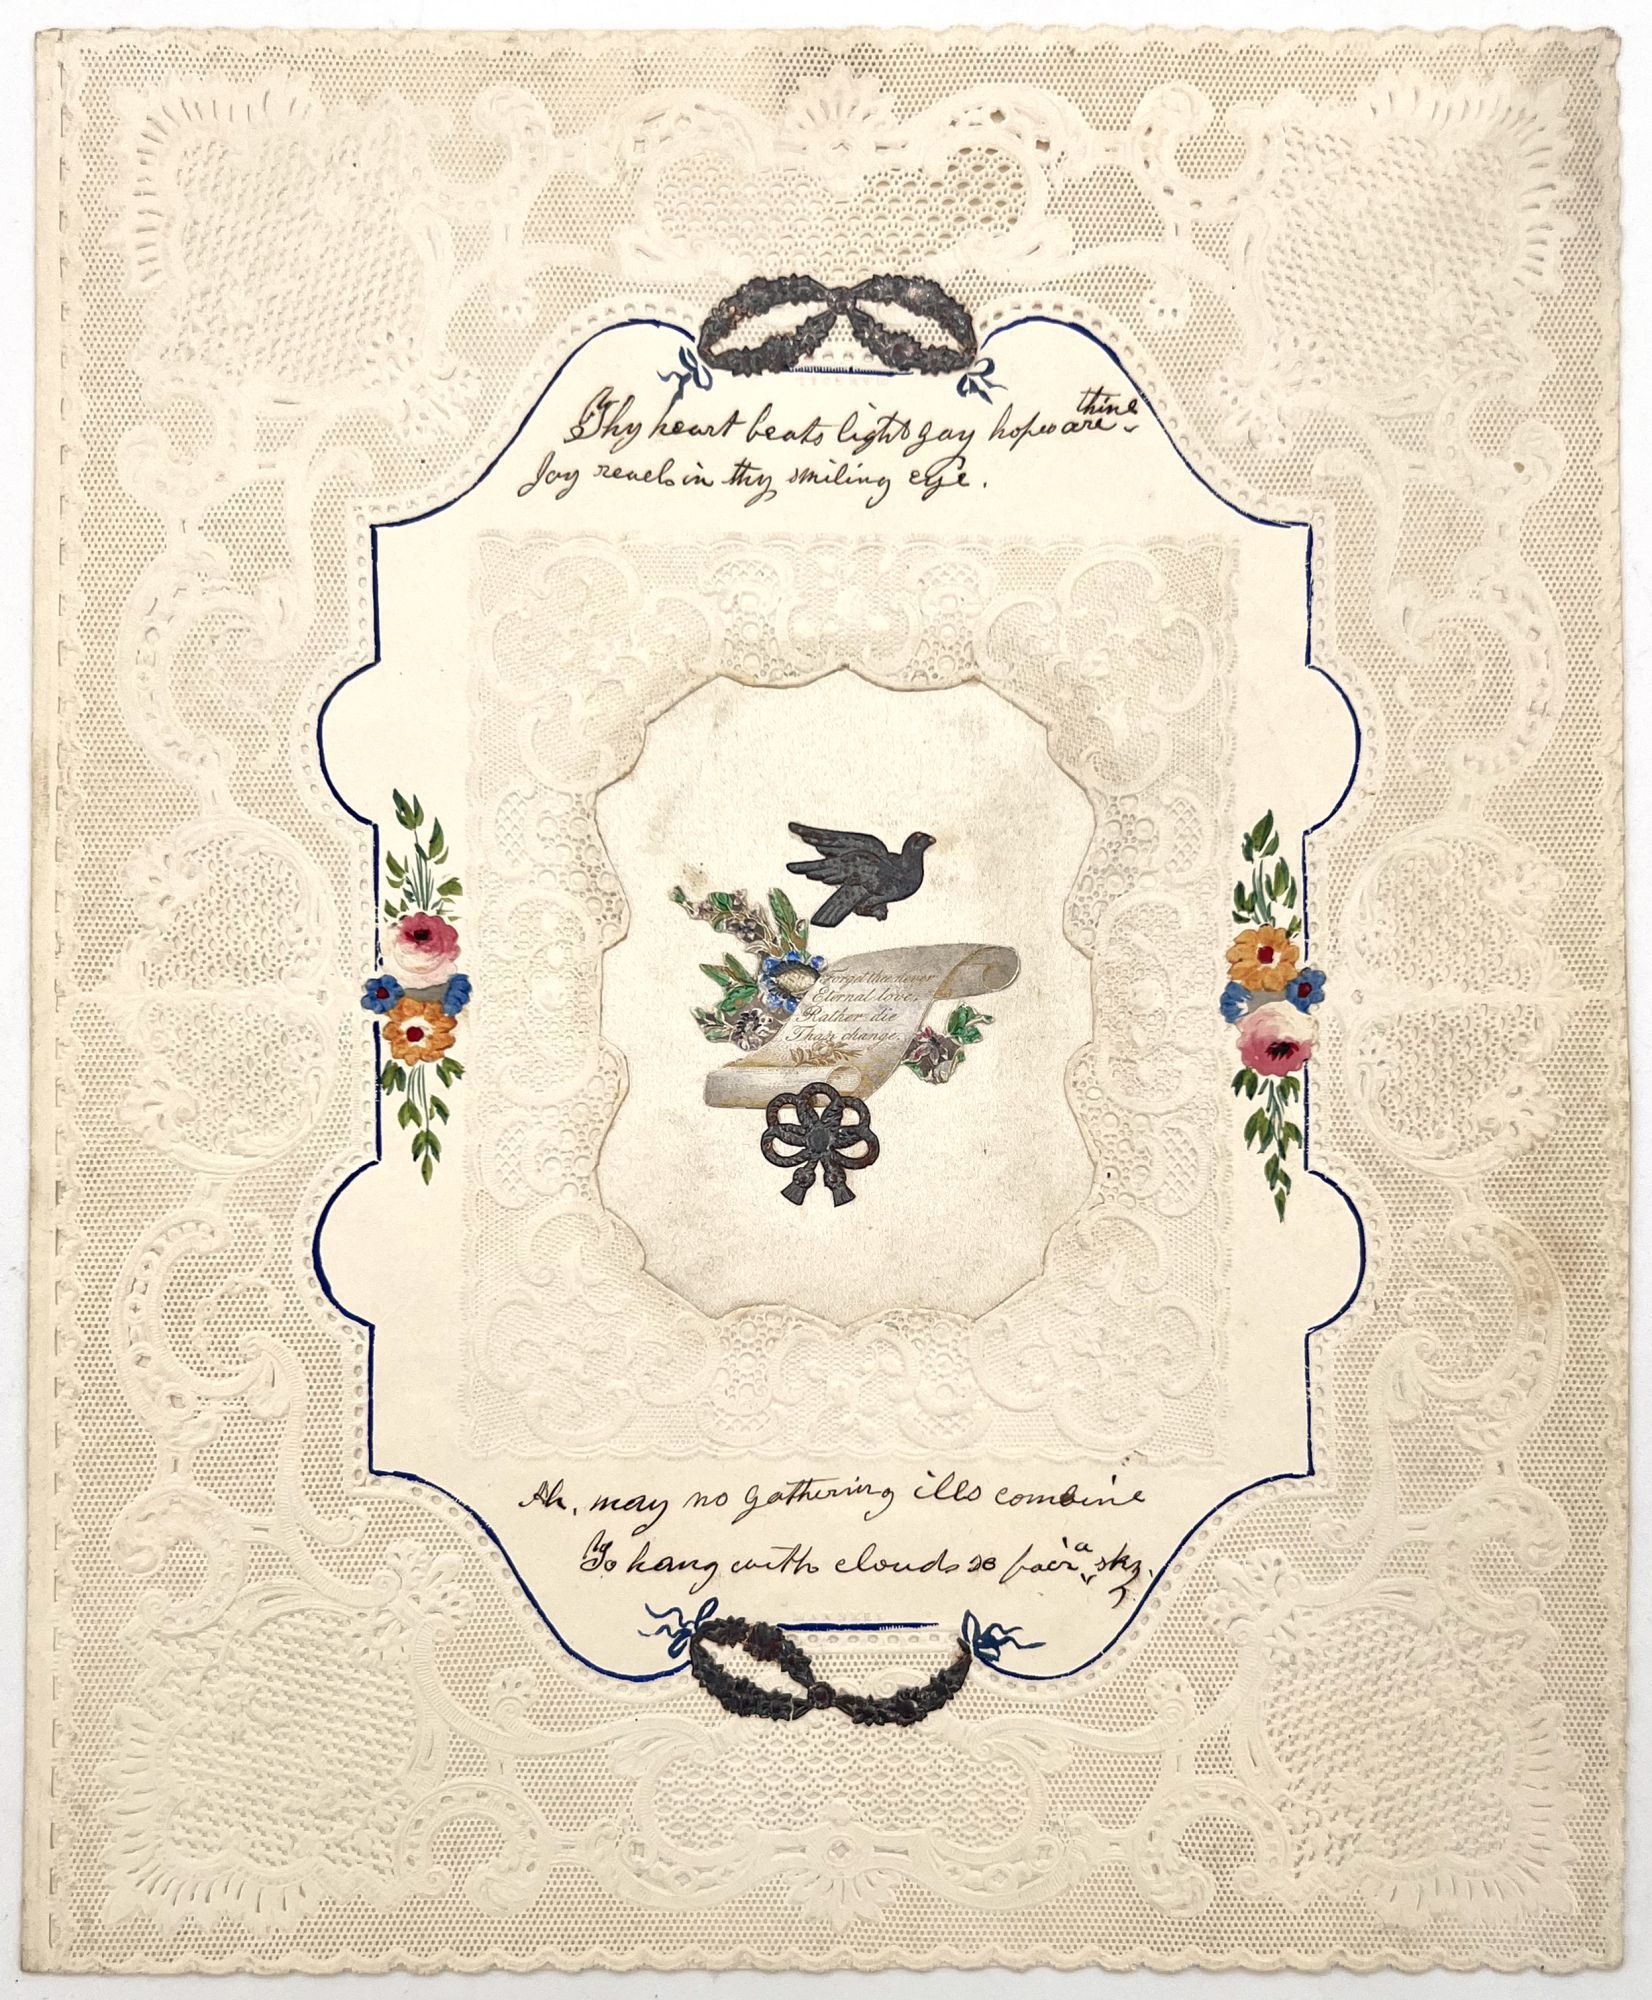 Thy heart beats light gay hopes are thine
Joy revels in thy smiling eye.
Forget thee never
Eternal love,
Rather die
Than change.
Ah, may no gathering ills combine
To hang with clouds so fair a sky.